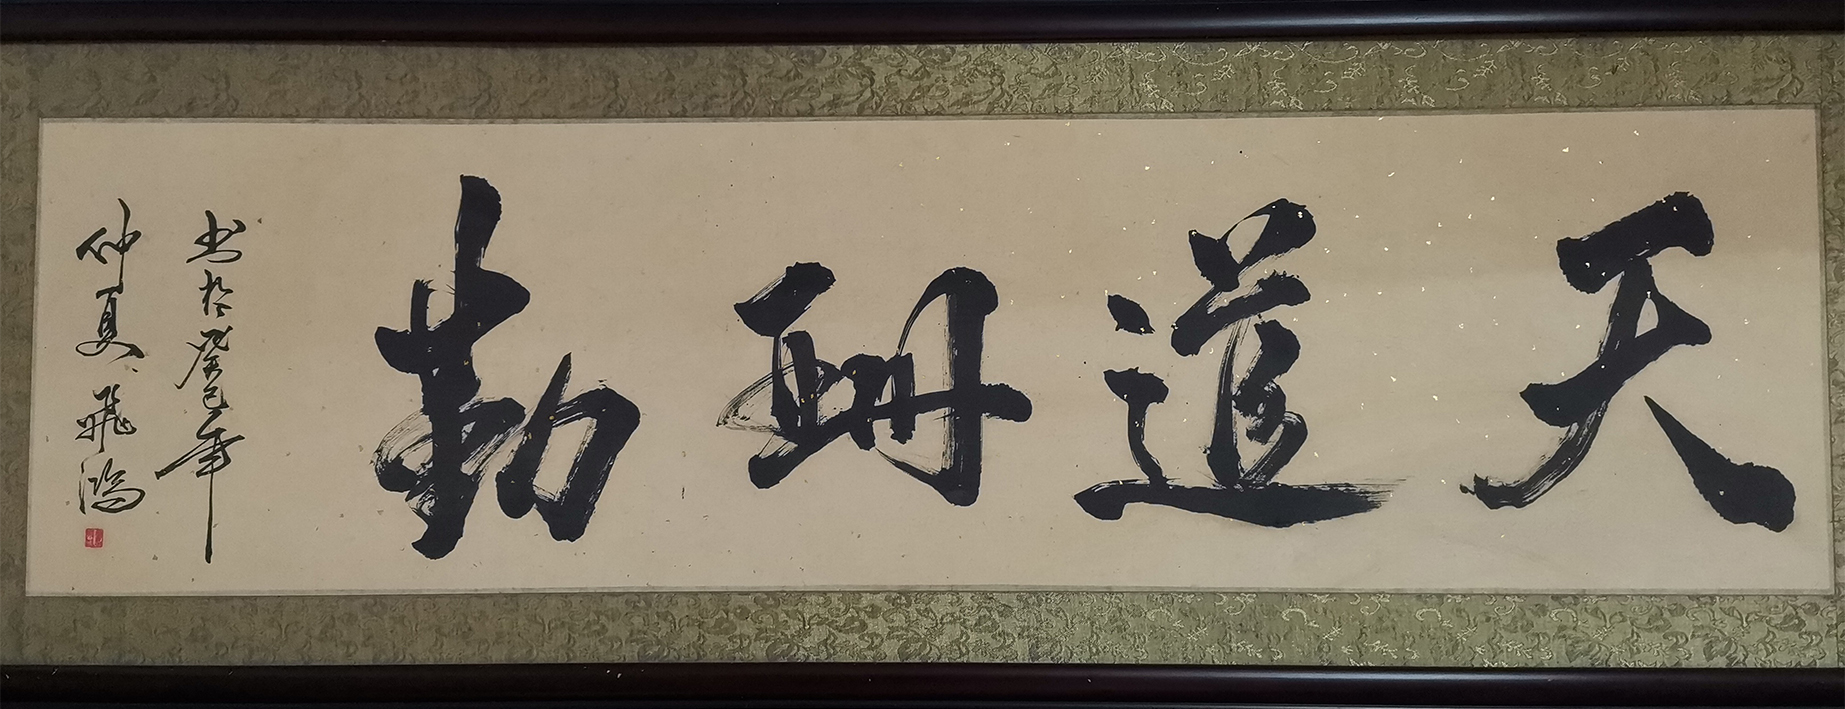 天道酬勤
书於癸巳年
仲夏飛鴻